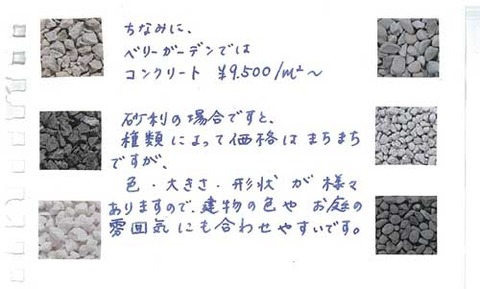 ちなみに、
ベリーガーデンでは
コンクリート ¥9,500/m²～
砂利の場合ですと、
種類によって価格はまちまち
ですが、
色・大きさ・形状が様々
ありますので、建物の色や お庭の
雰囲気にも合わせやすいです。